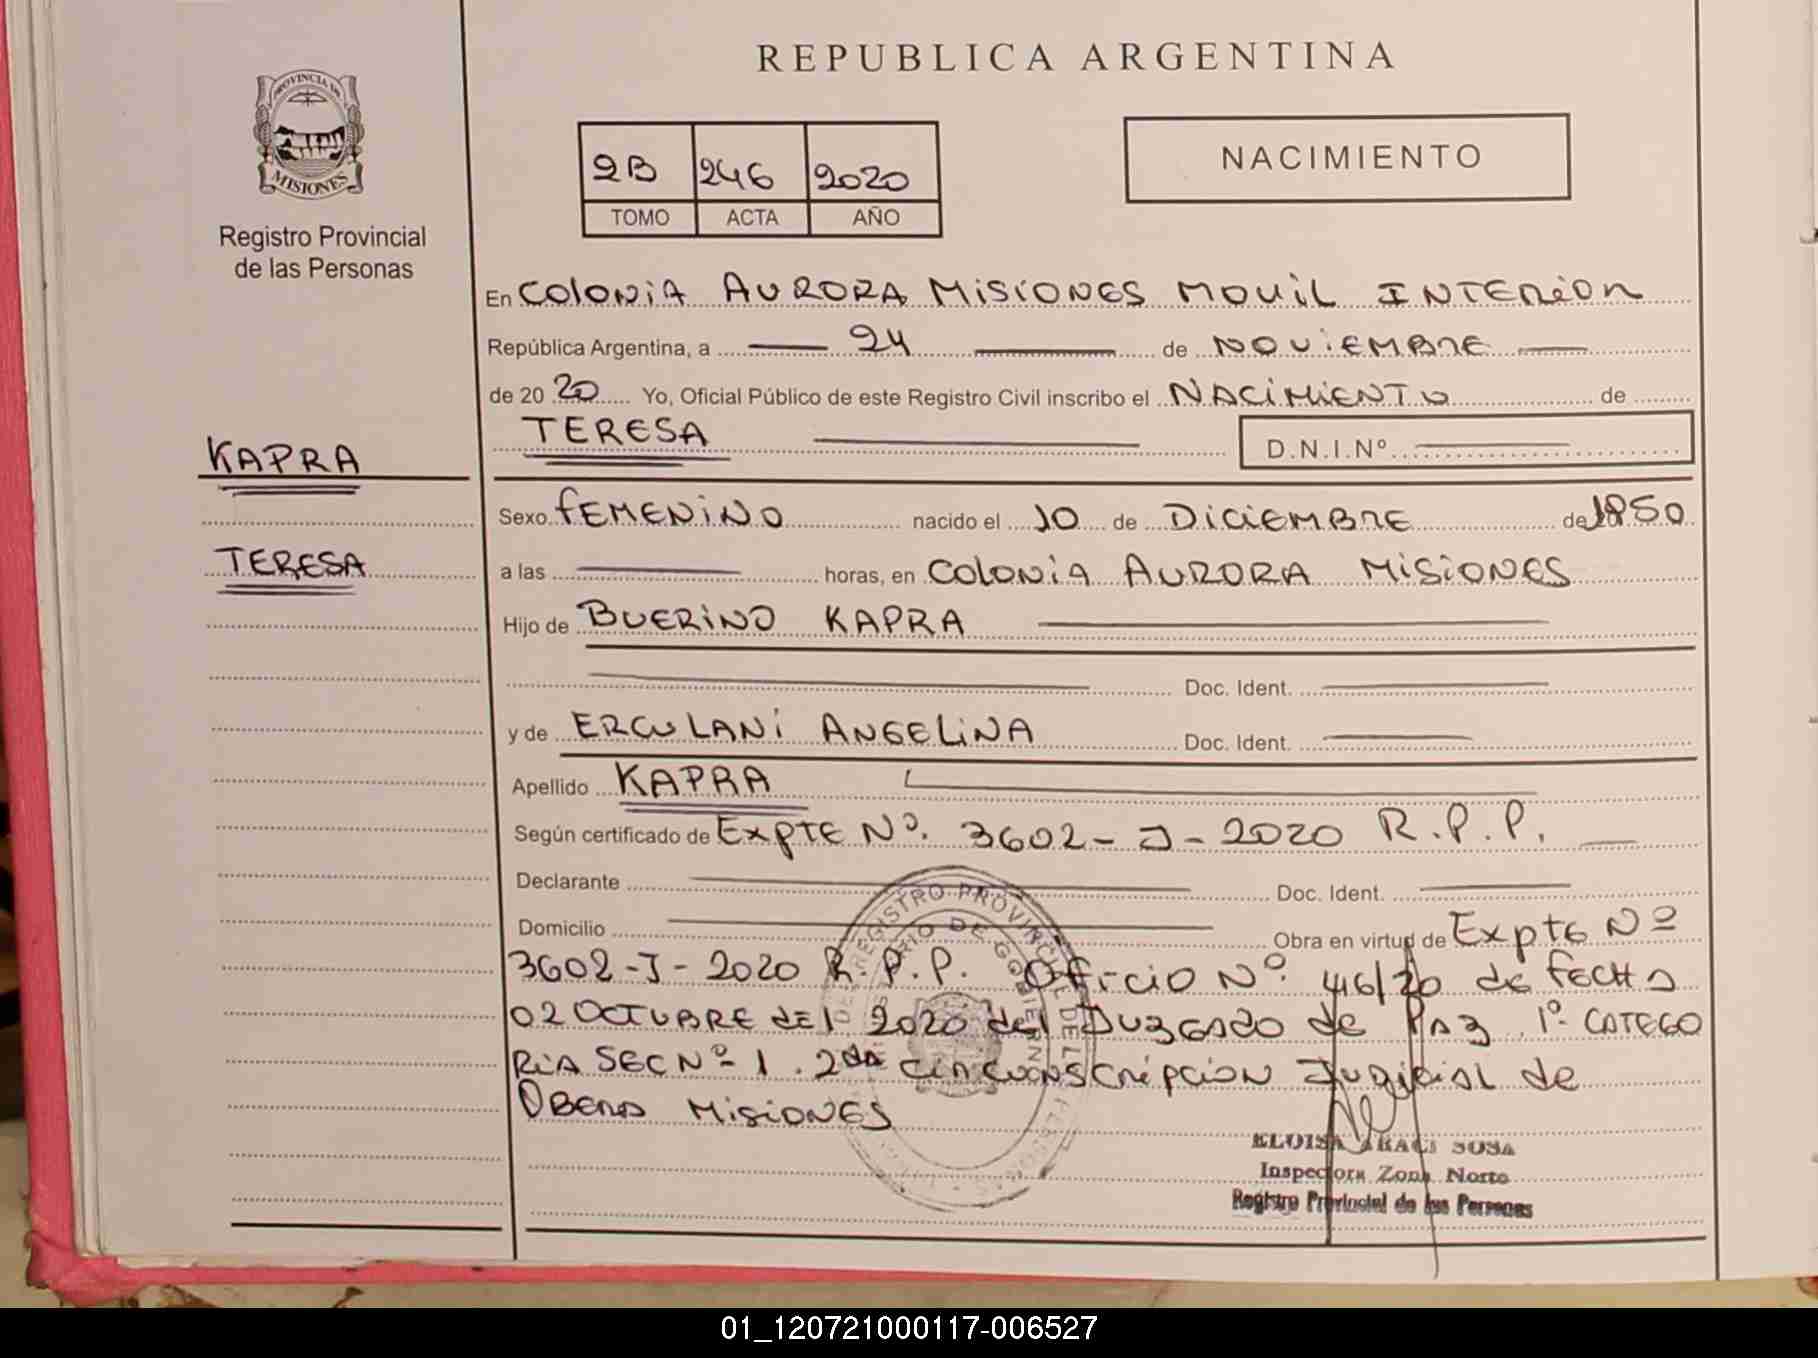 REPUBLICA ARGENTINA
PROVINCIA DE
MISIONES
Registro Provincial
de las Personas
2B 246 2020
TOMO ACTA AÑO
NACIMIENTO
En COLONIA AURORA MISIONES MOVIL INTERIOR
República Argentina, a 24 de NOVIEMBRE
de 2020 Yo, Oficial Público de este Registro Civil inscribo el NACIMIENTO de
TERESA D.N.I.Nº
KAPRA
Sexo FEMENINO nacido el 10 de DICIEMBRE de 1850
TERESA
a las horas, en COLONIA AURORA MISIONES
Hijo de BUERINO KAPRA
Doc. Ident.
y de ERCULANI ANGELINA Doc. Ident.
Apellido KAPRA
Según certificado de EXPTE Nº. 3602-J-2020 R.P.P.
Declarante Doc. Ident.
Domicilio Obra en virtud de EXPTE Nº
3602-J-2020 R.P.P. OFICIO Nº 46/20 de FECHA
02 OCTUBRE del 2020 del JUZGADO de PAZ 1º CATEGO
RIA SEC Nº 1. 2da CIRCUNSCRIPCION JUDICIAL de
OBERA MISIONES
REGISTRO PROVINCIAL DE LAS PERSONAS
MINISTERIO DE GOBIERNO
ELOISA ARACI SOSA
Inspectora Zona Norte
Registro Provincial de las Personas
01_120721000117-006527